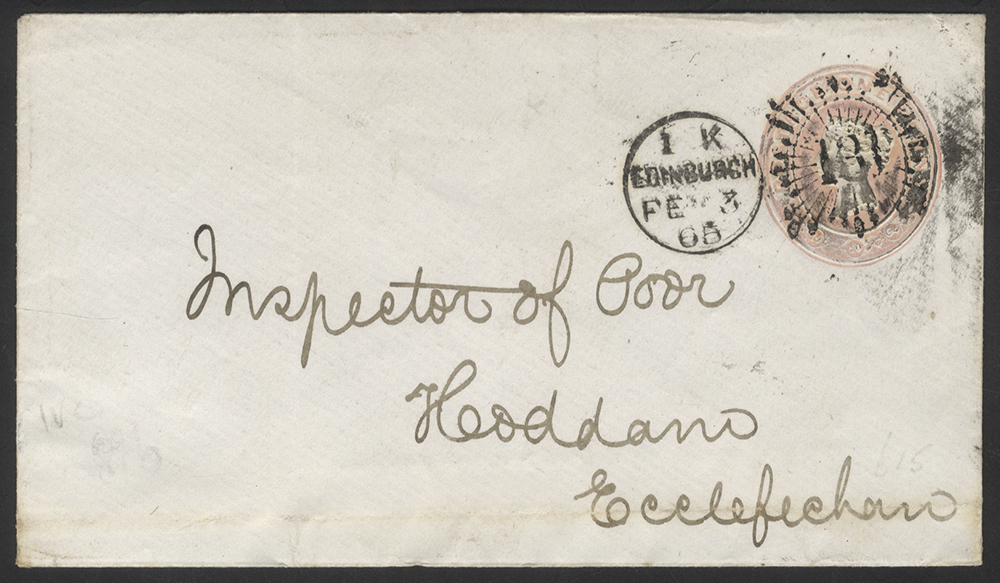 1 K
EDINBURGH
FE 3
65
131
Inspector of Poor
Hoddam
Ecclefechan
615